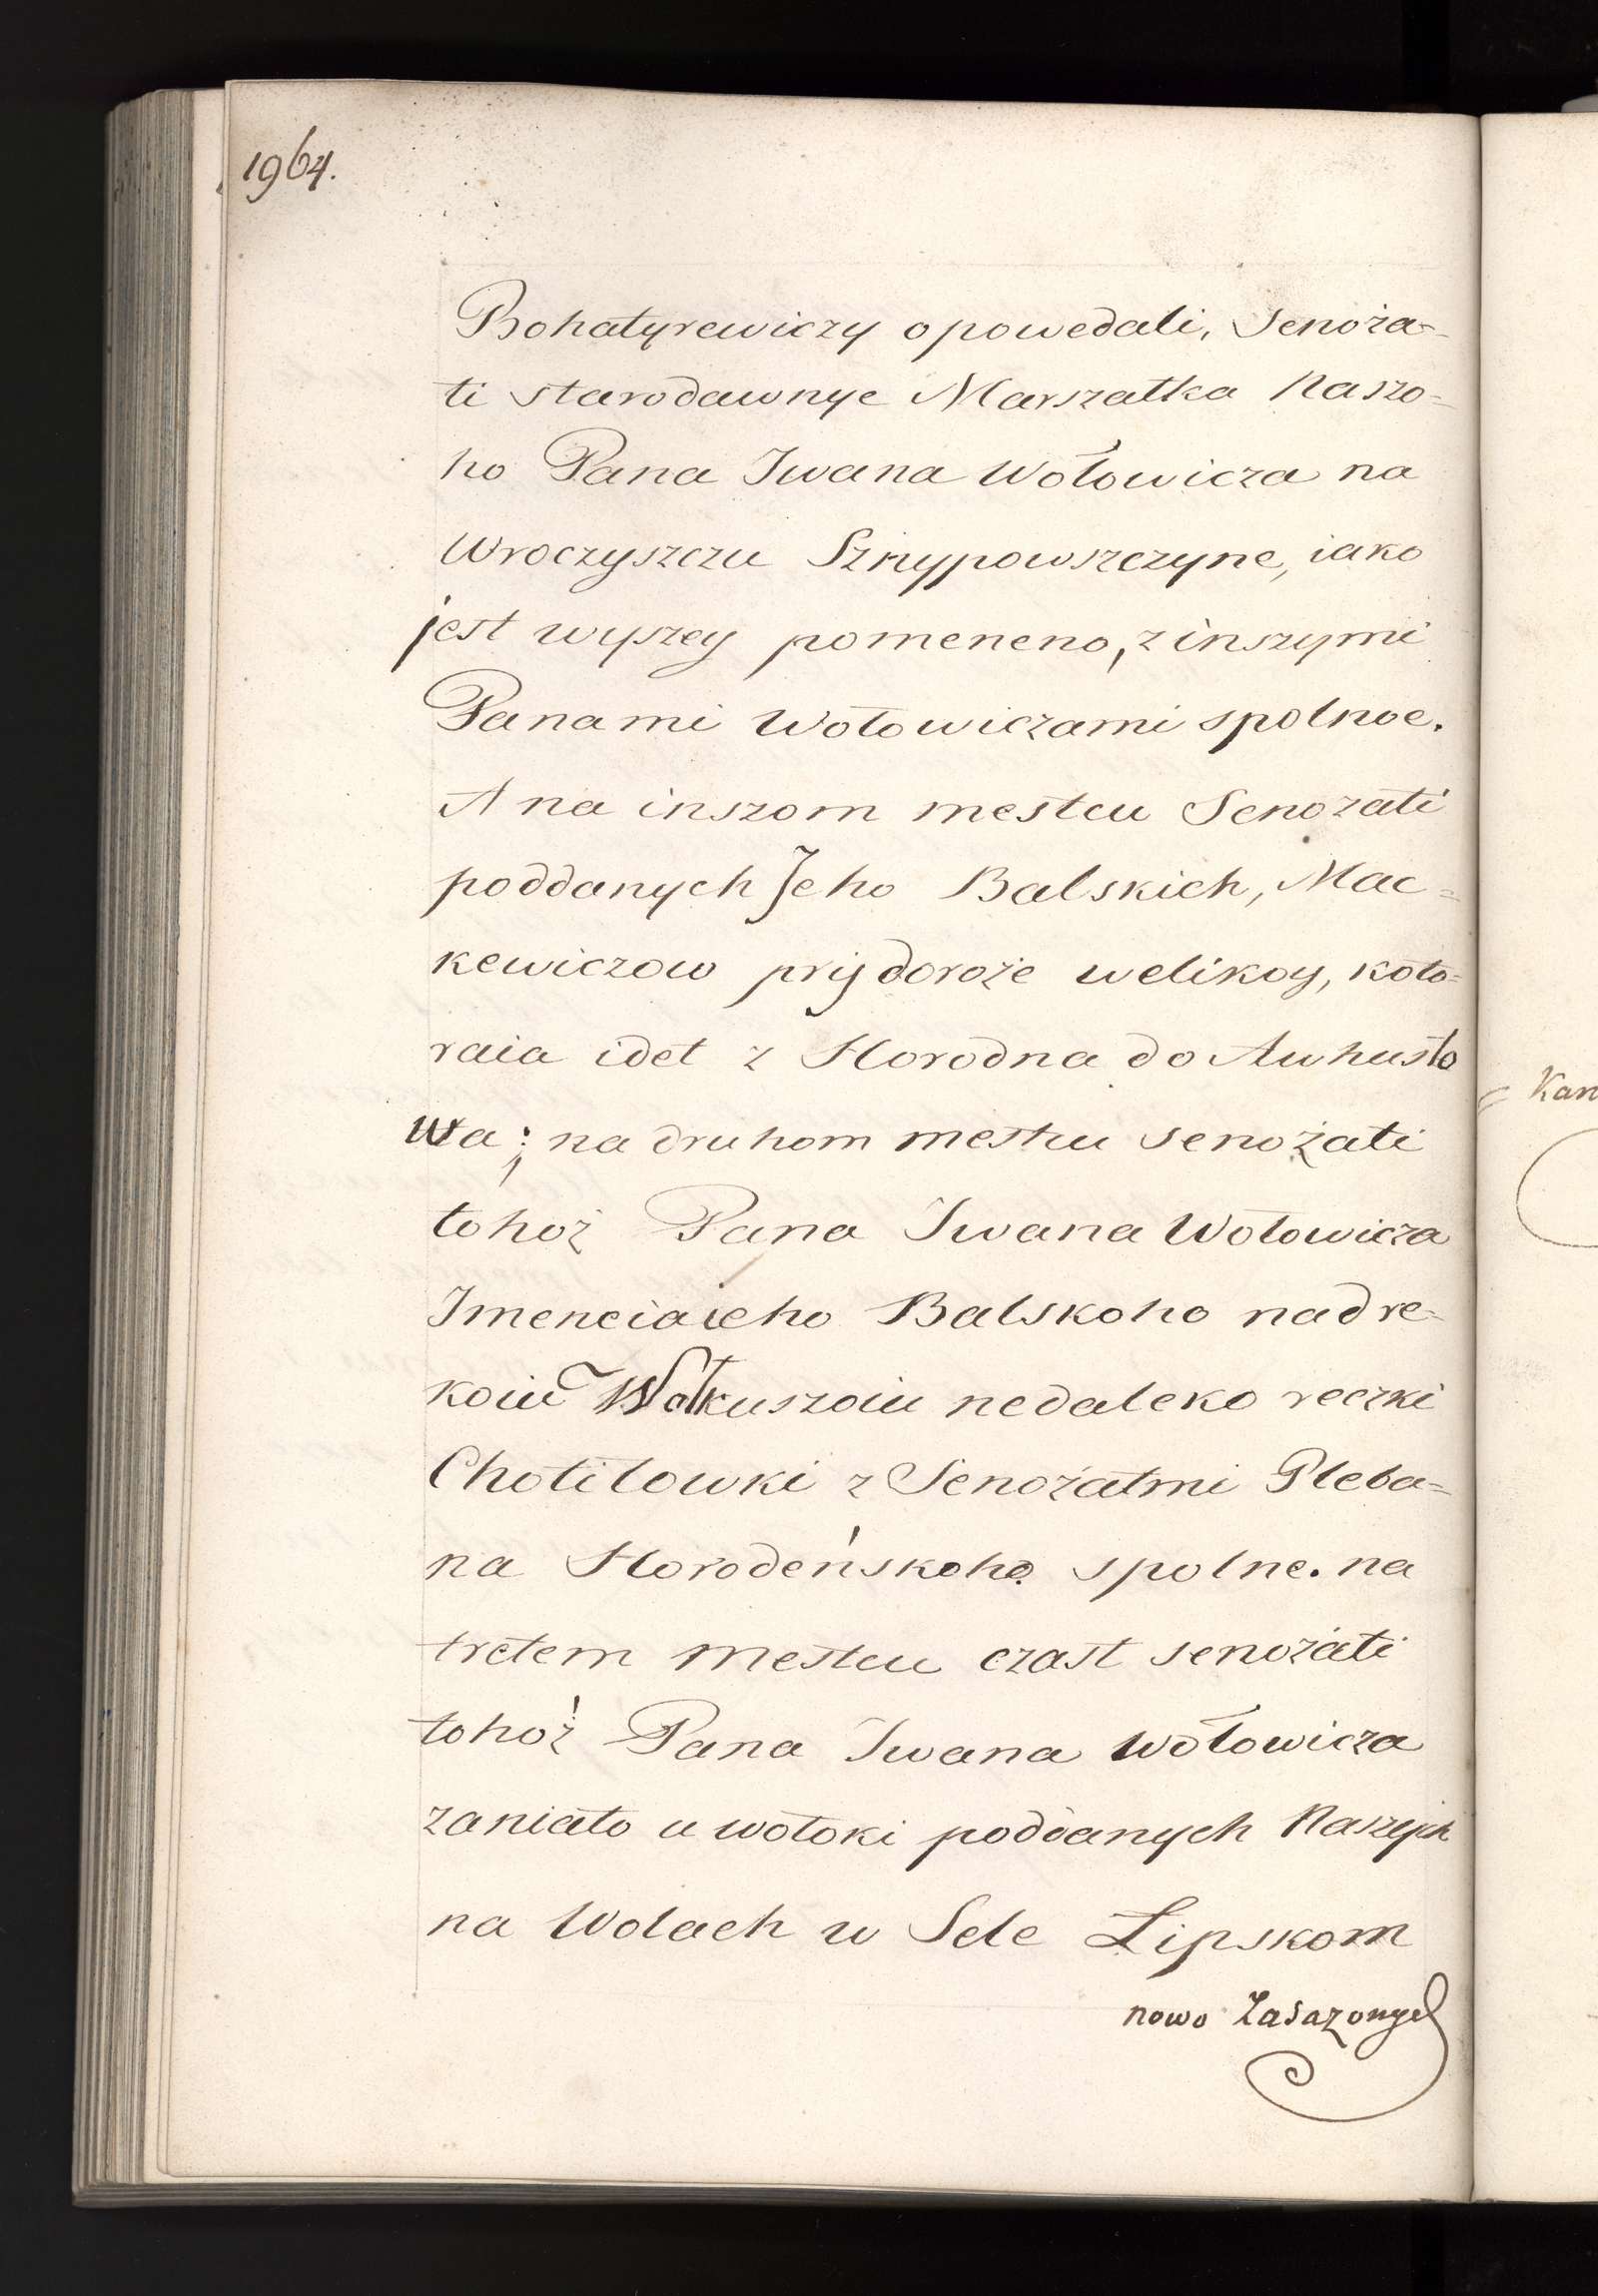 1964.
Bohatyrewiczy opowedali, Senoża=
ti starodawnye Marszałka Naszo=
ho Pana Iwana Wołowicza na
Wroczyszczu Sznypowszczyne, iako
jest wyszey pomeneno, z inszymi
Panami Wołowiczami spolnoe.
A na inszom mestcu Senożati
poddanych Jeho Balskich, Mac=
kewiczow prij doroże welikoy, koto=
raia idet z Horodna do Awhusto
wa; na druhom mestcu senożati
tohoż Pana Iwana Wołowicza
Imeneia ieho Balskoho nad re=
koiu Wołkuszoiu nedaleko reczki
Chotiłowki z Senożatmi Pleba=
na Horodeńskoho spolne. na
tretem mestcu czast senożati
tohoż Pana Iwana Wołowicza
zaniato u wołoki poddanych Naszych
na Wolach w Sele Lipskom
nowo Zasazonych
Kan